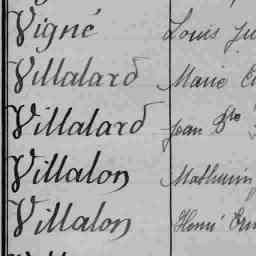 Vigné Louis
Villalard Marie
Villalard Jean Bte
Villalon Mathurin
Villalon Henri